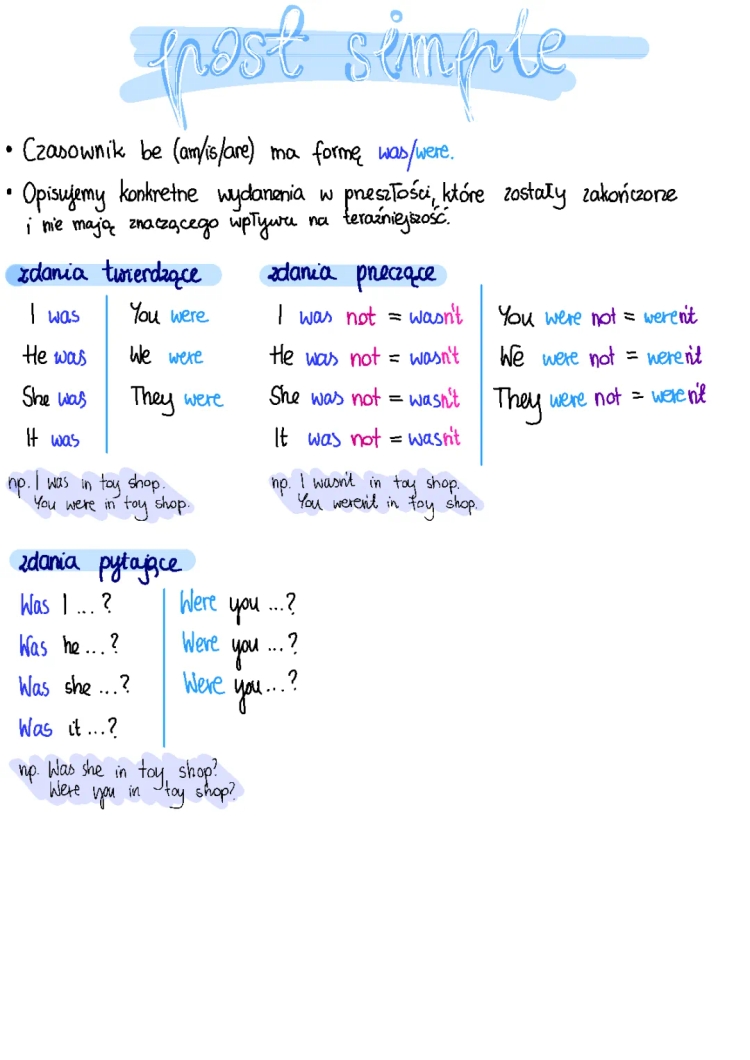 past simple
• Czasownik be (am/is/are) ma formę was/were.
• Opisujemy konkretne wydarzenia w przeszłości, które zostały zakończone
i nie mają znaczącego wpływu na teraźniejszość.
zdania twierdzące
I was
He was
She was
It was
You were
We were
They were
np. I was in toy shop.
You were in toy shop.
zdania przeczące
I was not = wasn't
He was not = wasn't
She was not = wasn't
It was not = wasn't
You were not = weren't
We were not = weren't
They were not = weren't
np. I wasn't in toy shop.
You weren't in toy shop.
zdania pytające
Was I ... ?
Was he ... ?
Was she ... ?
Was it ... ?
Were you ... ?
Were you ... ?
Were you ... ?
np. Was she in toy shop?
Were you in toy shop?